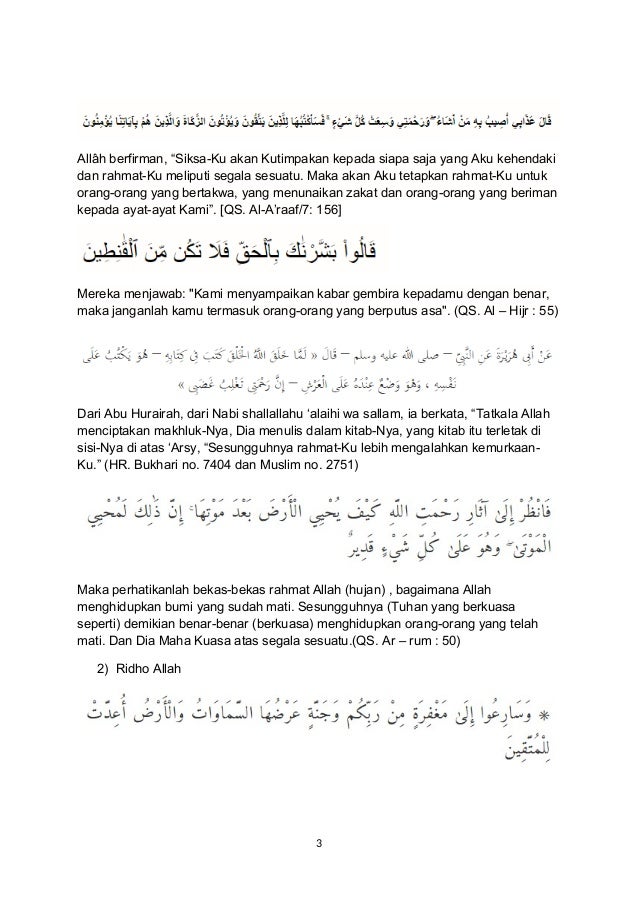 قَالَ عَذَابِي أُصِيبُ بِهِ مَنْ أَشَاءُ ۖ وَرَحْمَتِي وَسِعَتْ كُلَّ شَيْءٍ ۚ فَسَأَكْتُبُهَا لِلَّذِينَ يَتَّقُونَ وَيُؤْتُونَ الزَّكَاةَ وَالَّذِينَ هُمْ بِآيَاتِنَا يُؤْمِنُونَ
Allâh berfirman, “Siksa-Ku akan Kutimpakan kepada siapa saja yang Aku kehendaki
dan rahmat-Ku meliputi segala sesuatu. Maka akan Aku tetapkan rahmat-Ku untuk
orang-orang yang bertakwa, yang menunaikan zakat dan orang-orang yang beriman
kepada ayat-ayat Kami”. [QS. Al-A’raaf/7: 156]
قَالُوا۟ بَشَّرْنَٰكَ بِٱلْحَقِّ فَلَا تَكُن مِّنَ ٱلْقَٰنِطِينَ
Mereka menjawab: "Kami menyampaikan kabar gembira kepadamu dengan benar,
maka janganlah kamu termasuk orang-orang yang berputus asa". (QS. Al – Hijr : 55)
عَنْ أَبِى هُرَيْرَةَ عَنِ النَّبِىِّ – صلى الله عليه وسلم – قَالَ « لَمَّا خَلَقَ اللَّهُ الْخَلْقَ كَتَبَ فِى كِتَابِهِ – هُوَ يَكْتُبُ عَلَى
نَفْسِهِ ، وَهْوَ وَضْعٌ عِنْدَهُ عَلَى الْعَرْشِ – إِنَّ رَحْمَتِى تَغْلِبُ غَضَبِى »
Dari Abu Hurairah, dari Nabi shallallahu ‘alaihi wa sallam, ia berkata, “Tatkala Allah
menciptakan makhluk-Nya, Dia menulis dalam kitab-Nya, yang kitab itu terletak di
sisi-Nya di atas ‘Arsy, “Sesungguhnya rahmat-Ku lebih mengalahkan kemurkaan-
Ku.” (HR. Bukhari no. 7404 dan Muslim no. 2751)
فَانْظُرْ إِلَىٰ آثَارِ رَحْمَتِ اللَّهِ كَيْفَ يُحْيِي الْأَرْضَ بَعْدَ مَوْتِهَا ۚ إِنَّ ذَٰلِكَ لَمُحْيِي
الْمَوْتَىٰ ۖ وَهُوَ عَلَىٰ كُلِّ شَيْءٍ قَدِيرٌ
Maka perhatikanlah bekas-bekas rahmat Allah (hujan) , bagaimana Allah
menghidupkan bumi yang sudah mati. Sesungguhnya (Tuhan yang berkuasa
seperti) demikian benar-benar (berkuasa) menghidupkan orang-orang yang telah
mati. Dan Dia Maha Kuasa atas segala sesuatu.(QS. Ar – rum : 50)
2) Ridho Allah
* وَسَارِعُوا إِلَىٰ مَغْفِرَةٍ مِنْ رَبِّكُمْ وَجَنَّةٍ عَرْضُهَا السَّمَاوَاتُ وَالْأَرْضُ أُعِدَّتْ
لِلْمُتَّقِينَ
3